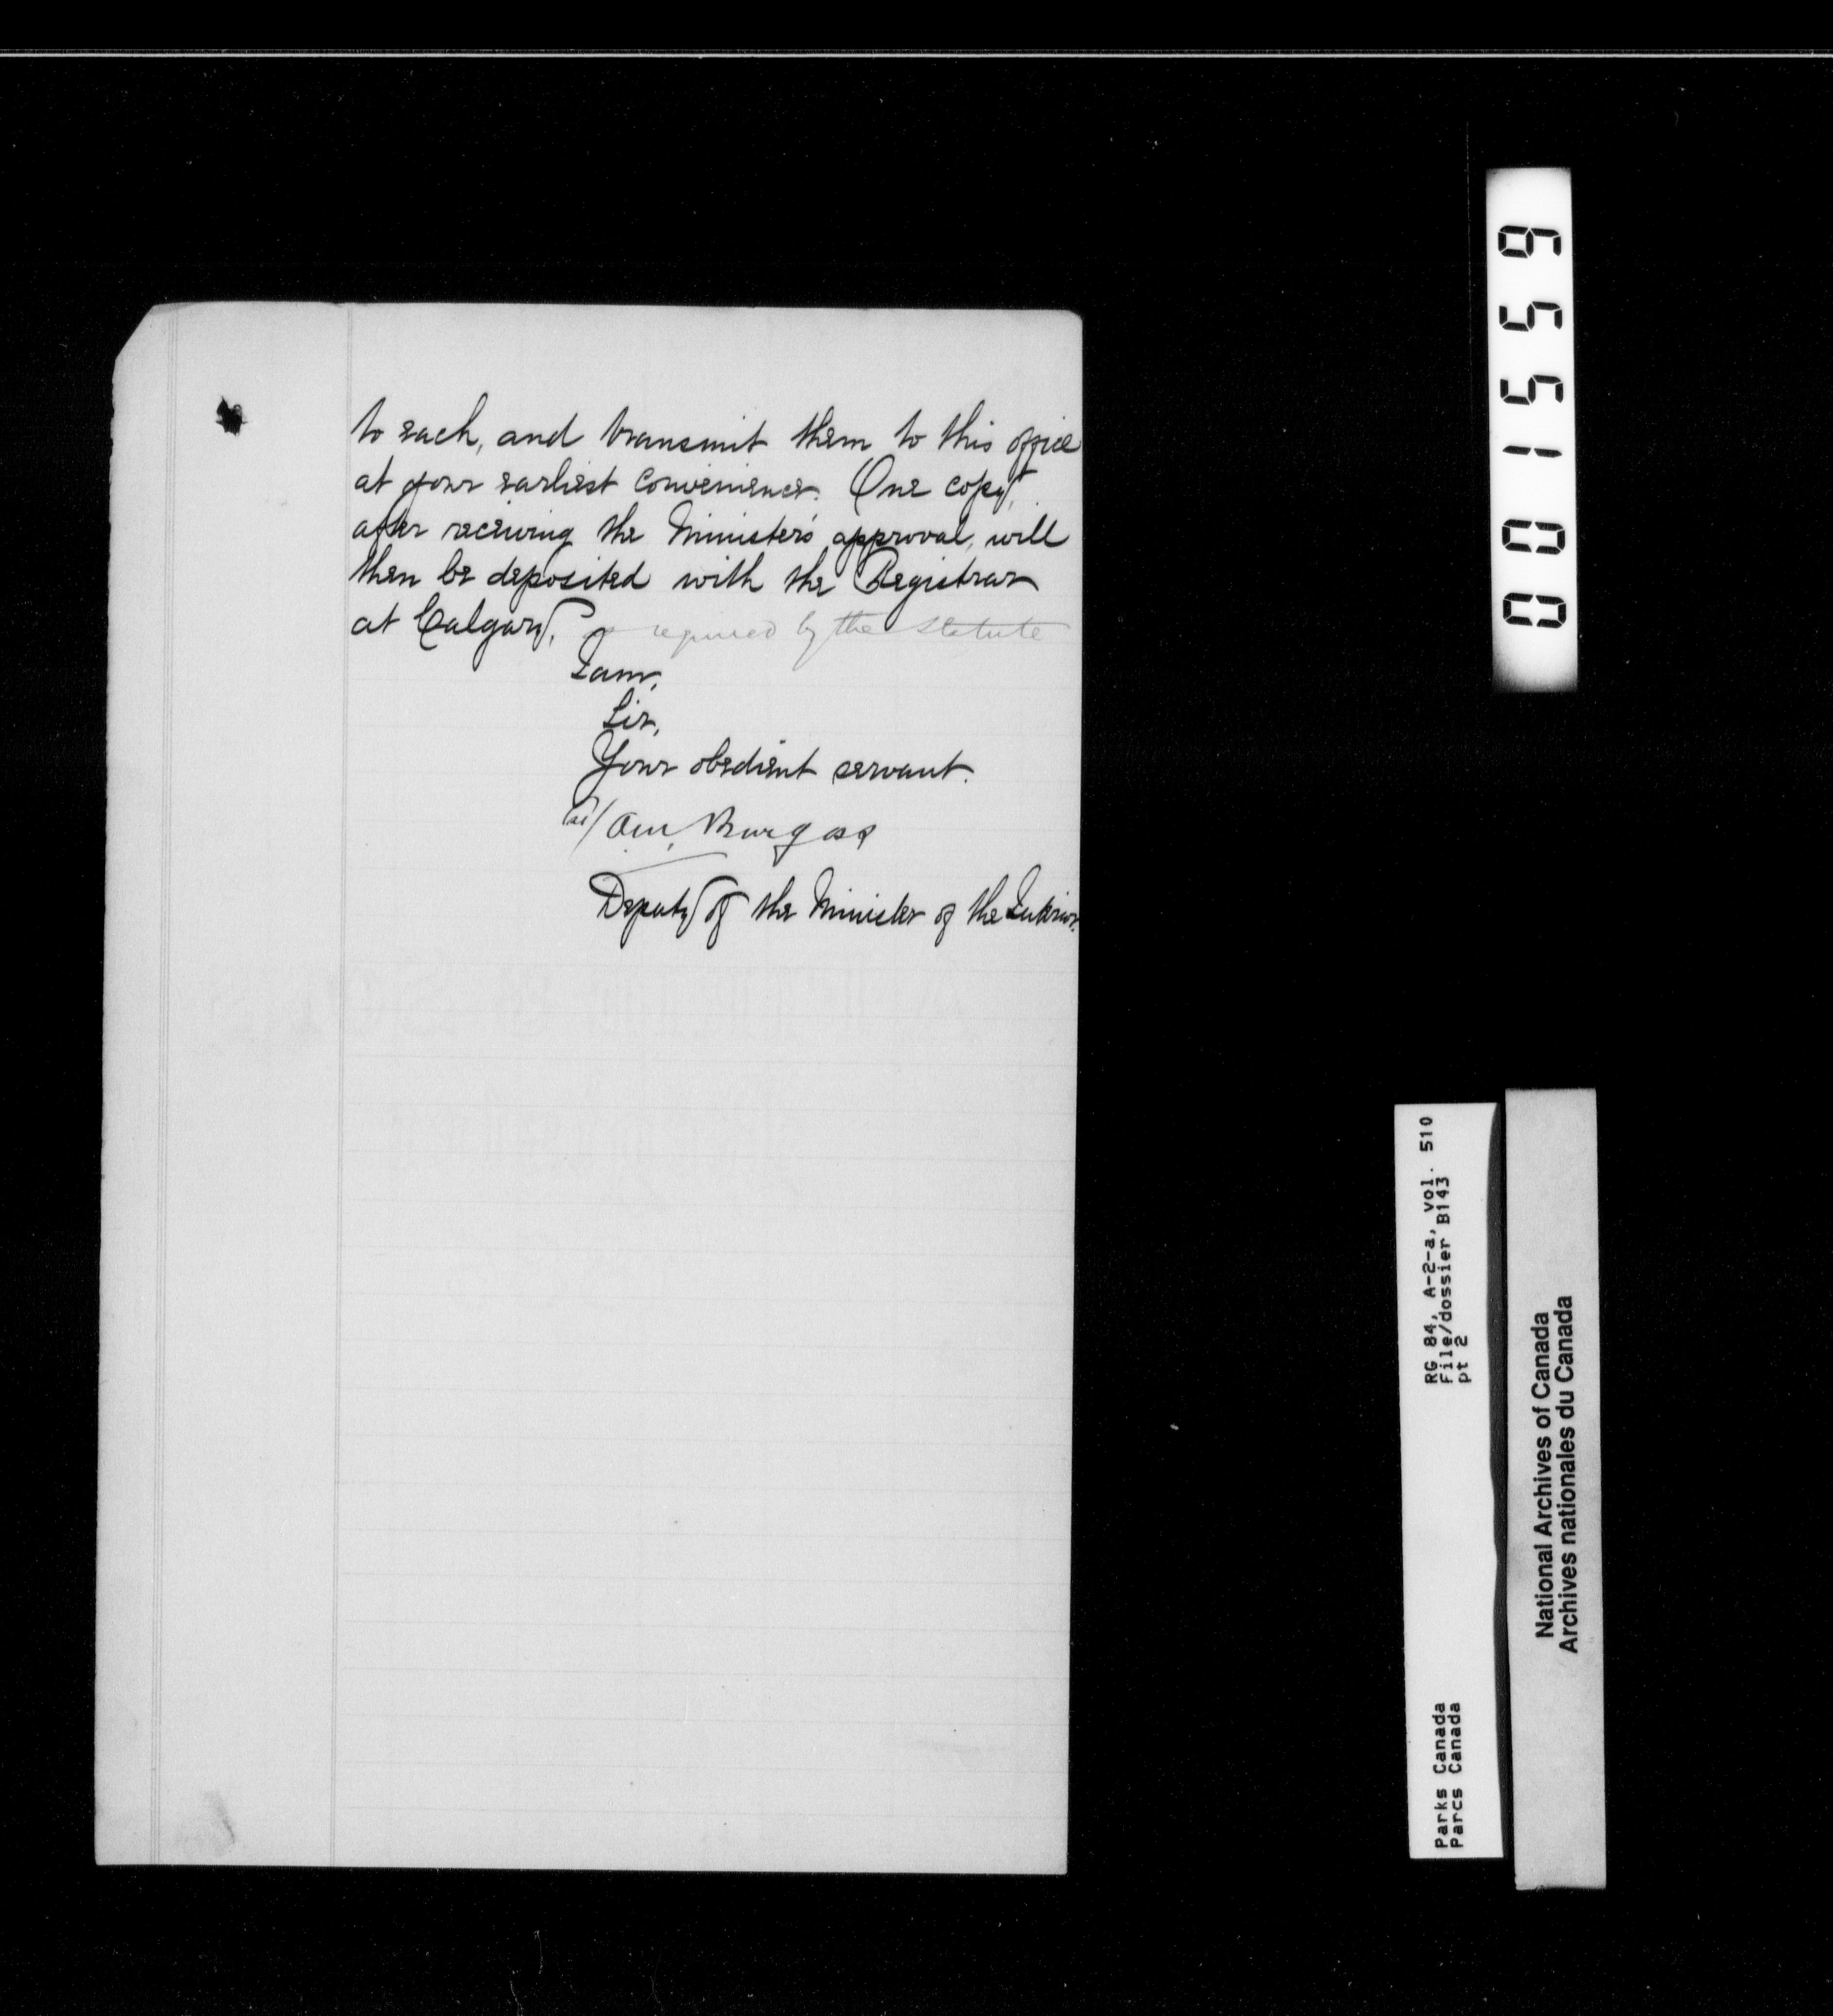 to each, and transmit them to this office
at your earliest convenience. One copy,
after receiving the Minister's approval, will
then be deposited with the Registrar
at Calgary, as required by the statute
I am,
Sir,
Your obedient servant.
A M Burgess
Deputy of the Minister of the Interior.
001559
RG 84, A-2-a, vol. 510
File/dossier B143
pt 2
Parks Canada
Parcs Canada
National Archives of Canada
Archives nationales du Canada